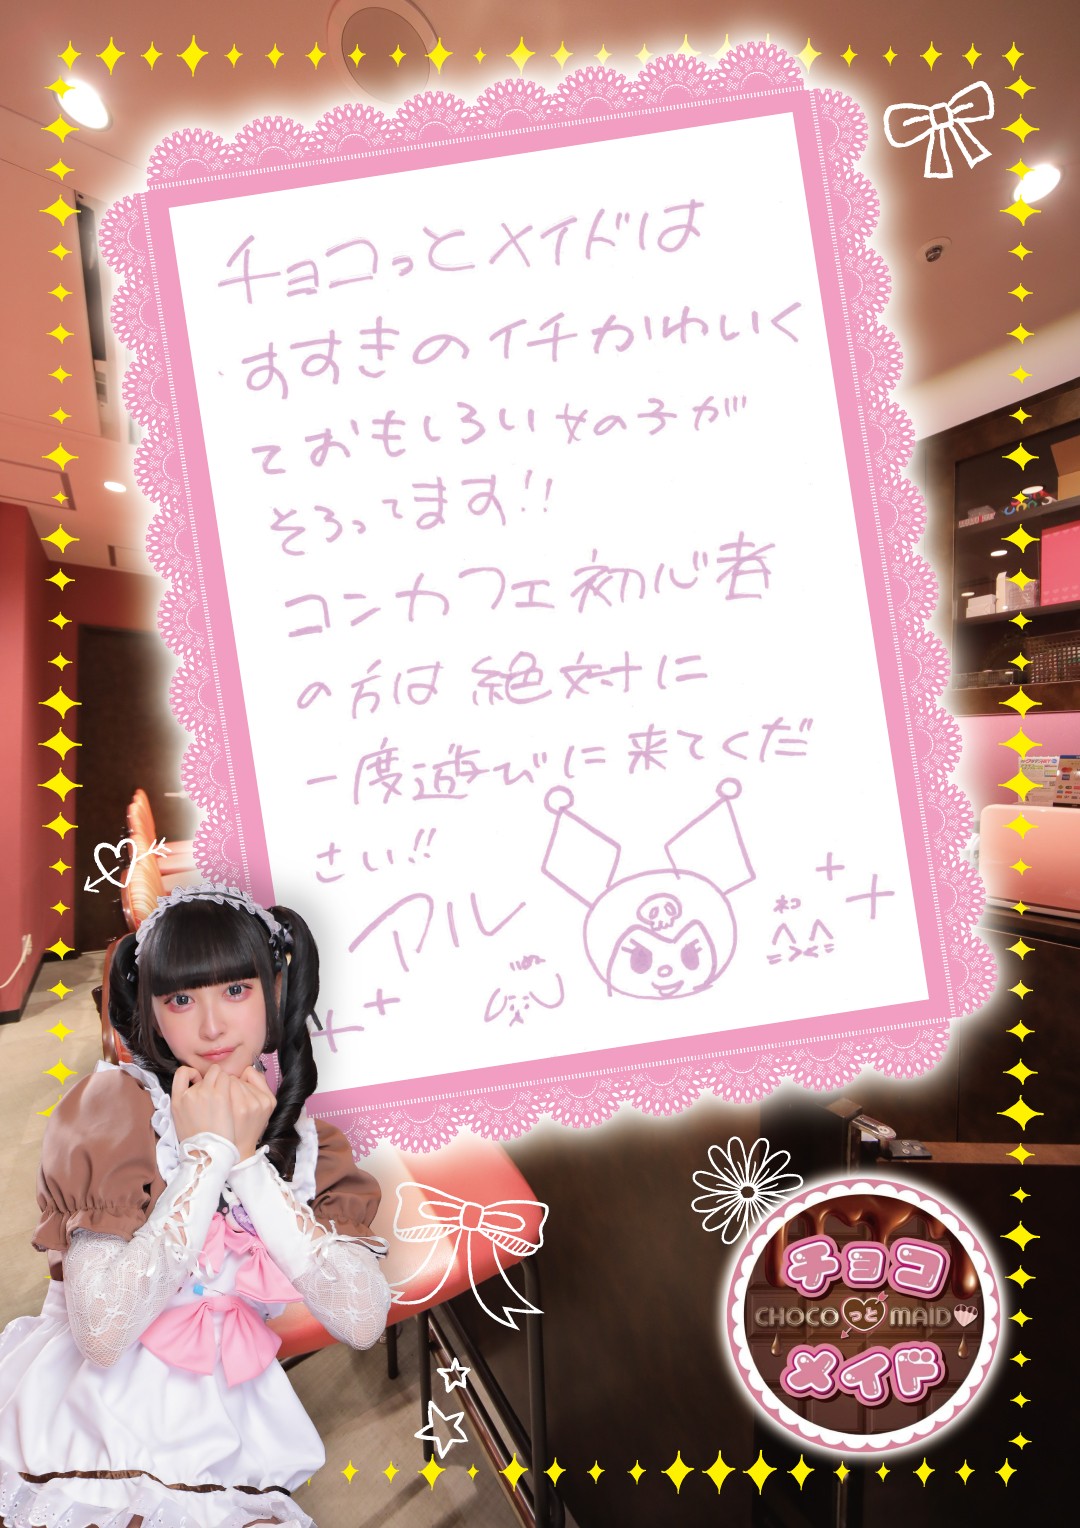 チョコっとメイドは
すすきのイチかわいく
ておもしろい女の子が
そろってます!!
コンカフェ初心者
の方は絶対に
一度遊びに来てくだ
さい!!
アル
ネコ
チョコ
CHOCO っと MAID
メイド